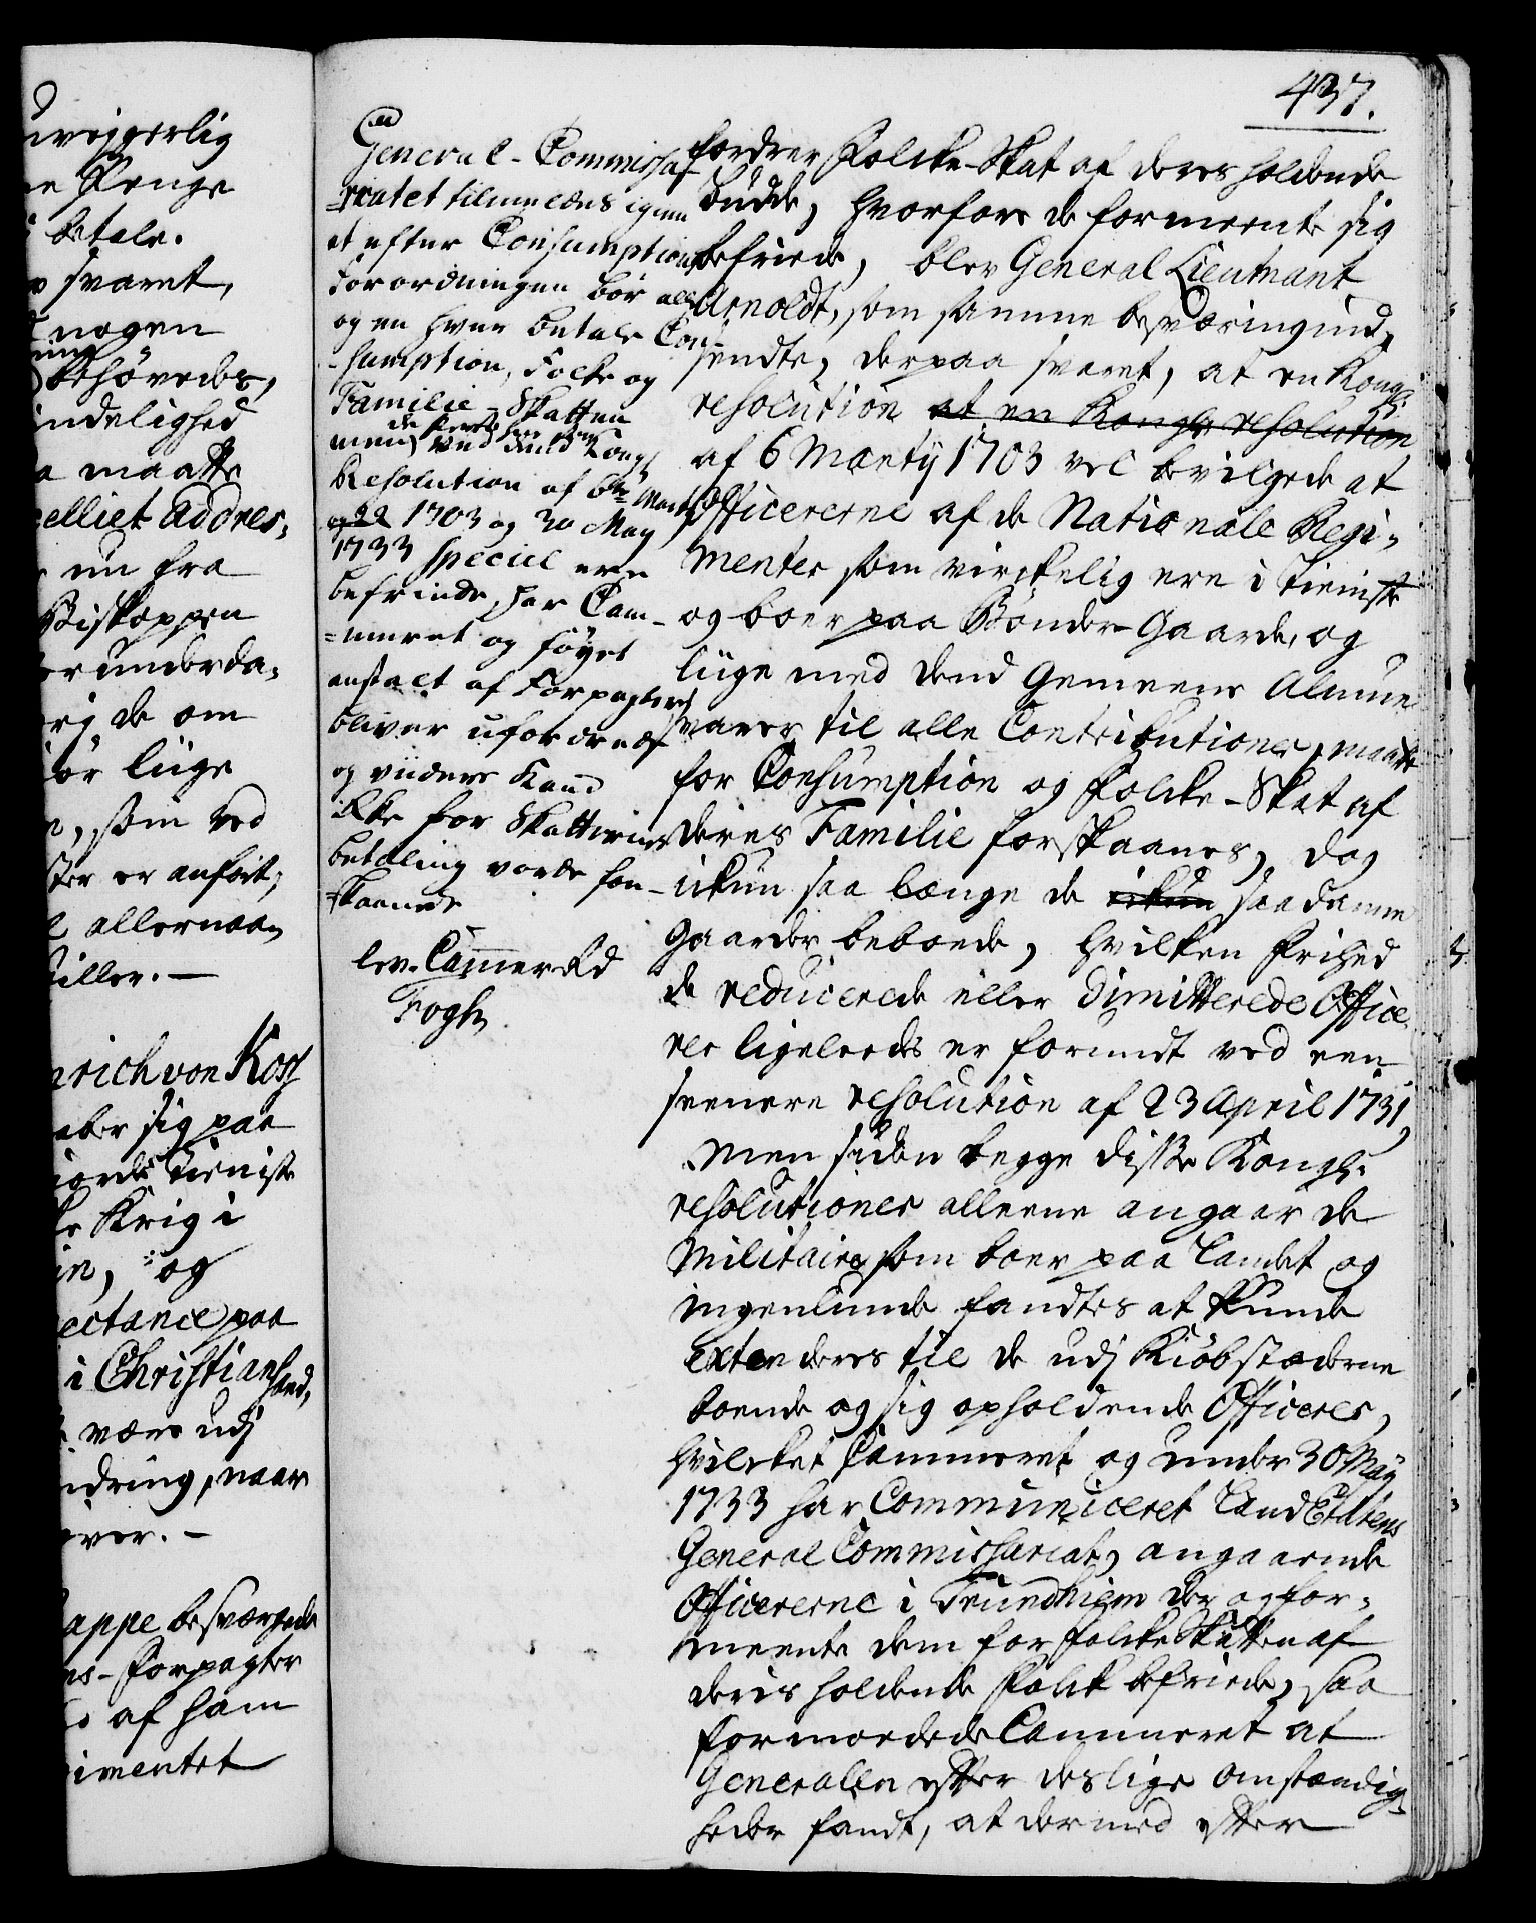 uveÿgerlig
ne Penge
betale.
svaret,
nogen
behövedes,
indelighed
a maatte
celliet Addres,
nu fra
Biskoppen
er underda,
rig de om
för liige
n, som ved
ster er anfört,
allernaa,
stiller. —
nrich von Kos
aber sig paa
iords tieniste
Krig i
in, og
ectance paa
i Christiansand,
være udj
ndring, naar
iver. —
appe besværgede
ns-Forpagter
af ham
imentet
437.
General-Commissa,
riatet tilmeldes igien
at efter Consumptions
Forordningen bör alle
og en hver betale Con-
sumption, Folke og
Familie-Skatten
men de som ved Kongl.
Resolution af 6te Marty
1703 og 30 May
1733 speciel ere
befriede, har Cam-
meret og föyet
anstalt af Forpagteren
bliver ufordret
og viidere Kand
ikke for Skatternes
betaling vorde for-
skaanede
lev. Cammer Rd
Fogh
fordrer Folke-Skat af deres holdende
budde, hvorfore de formeente sig
befriede, blev General Lieutnant
Arnoldt, som samme besværing ind,
sendte, derpaa svaret, at en Kongl.
resolution at en Kongl. resolution
af 6 Martij 1703 vel bevilgede at
Officererne af de Nationale Regi,
menter som virckelig ere i tieniste
og boer paa Bönder-Gaarde, og
liige med dend Gemeene Almue
svarer til alle Contributioner, maatte
for Consumption og Folcke-Skat af
deres Familie forskaanes, dog
ickun saa længe de ickun saadanne
Gaarder beboede, hvilken Frihed
de reducerede eller Dimitterede Office,
rer ligeleedes er forundt ved een
seenere resolution af 23 April 1731,
men siden begge disse Kongl.
resolutioner alleene angaar de
Militaire som boer paa Landet og
ingenlunde fandtes at kunde
extenderes til de udj Kiöbstæderne
boende og sig opholdende Officerer,
hvilcket Cammeret og under 30 May
1733 har Communiceret Land Etatens
General Commissariat, angaaende
Officererne i Trundhiem der og for,
meente dem for Folcke Skatten af
deris holdende Folck befriede, saa
formodede Cammeret at
Generalen efter deslige omstændig,
heder fandt, at dermed efter